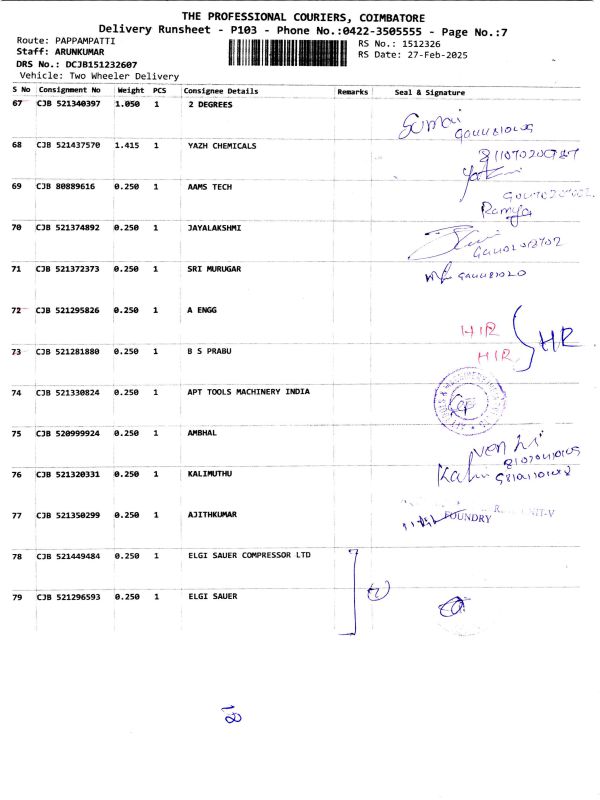 THE PROFESSIONAL COURIERS, COIMBATORE
Delivery Runsheet - P103 - Phone No.:0422-3505555 - Page No.:7
Route: PAPPAMPATTI
RS No.: 1512326
Staff: ARUNKUMAR
RS Date: 27-Feb-2025
DRS No.: DCJB151232607
Vehicle: Two Wheeler Delivery
S No Consignment No Weight PCS Consignee Details Remarks Seal & Signature
67 CJB 521340397 1.050 1 2 DEGREES
68 CJB 521437570 1.415 1 YAZH CHEMICALS
69 CJB 80889616 0.250 1 AAMS TECH
Ramya
70 CJB 521374892 0.250 1 JAYALAKSHMI
71 CJB 521372373 0.250 1 SRI MURUGAR
72 CJB 521295826 0.250 1 A ENGG HIR HR
73 CJB 521281880 0.250 1 B S PRABU HIR
74 CJB 521330824 0.250 1 APT TOOLS MACHINERY INDIA
75 CJB 520999924 0.250 1 AMBHAL
76 CJB 521320331 0.250 1 KALIMUTHU
77 CJB 521350299 0.250 1 AJITHKUMAR FOUNDRY
78 CJB 521449484 0.250 1 ELGI SAUER COMPRESSOR LTD
79 CJB 521296593 0.250 1 ELGI SAUER